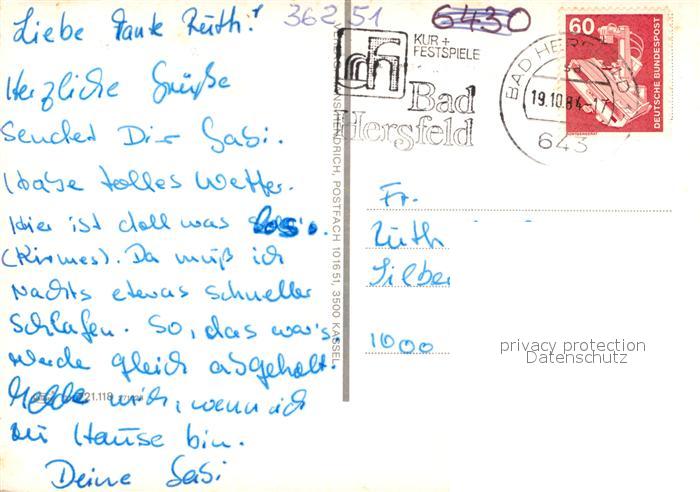 Liebe Tante Ruth!
Herzliche Grüße
sendet Dir Gabi.
Habe tolles Wetter.
Hier ist doll was los.
(Kirmes). Da muß ich
nachts etwas schneller
schlafen. So, das war's,
werde gleich abgeholt.
Melde mich, wenn ich
zu Hause bin.
Deine Gabi
362 51
6430
KUR +
FESTSPIELE
Bad
Hersfeld
BAD HERSFELD 1
19.10.84-17
643
60
DEUTSCHE BUNDESPOST
POSTFACH 101651, 3500 KASSEL
21.118
Fr.
Ruth
Silber
1000
privacy protection
Datenschutz